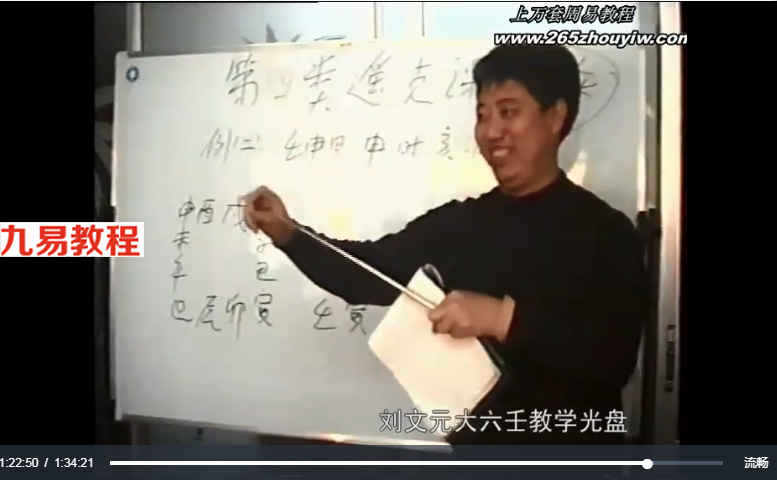 上万套周易教程
www.265zhouyiw.com
第三类遥克课
例(二) 壬申日 申时 亥
申酉戌
未
午
巳辰卯寅 壬寅
九易教程
刘文元大六壬教学光盘
1:22:50 / 1:34:21
流畅